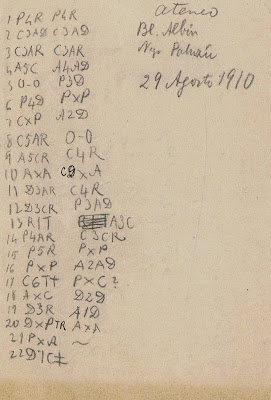 1 P4R P4R
2 C3AD C3AD
3 C3AR C3AR
4 A5C A4AD
5 O-O P3D
6 P4D PxP
7 CxP A2D
8 C5AR O-O
9 A5CR C4R
10 AxA CDxA
11 D3AR C4R
12 D3CR P3AD
13 R1T A3C
14 P4AR C3CR
15 P5R PxP
16 PxP A2AD
17 C6T+ PxC?
18 AxC D2D
19 D3R A1D
20 DxPTR AxA
21 PxA ~
22 D7C‡
Ateneo
Bl. Albin
29 Agosto 1910